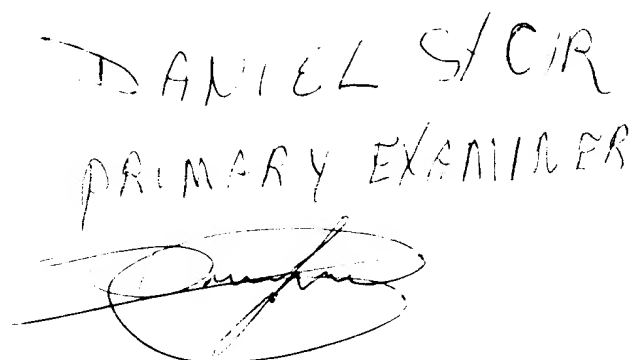 DANIEL ST CYR
PRIMARY EXAMINER